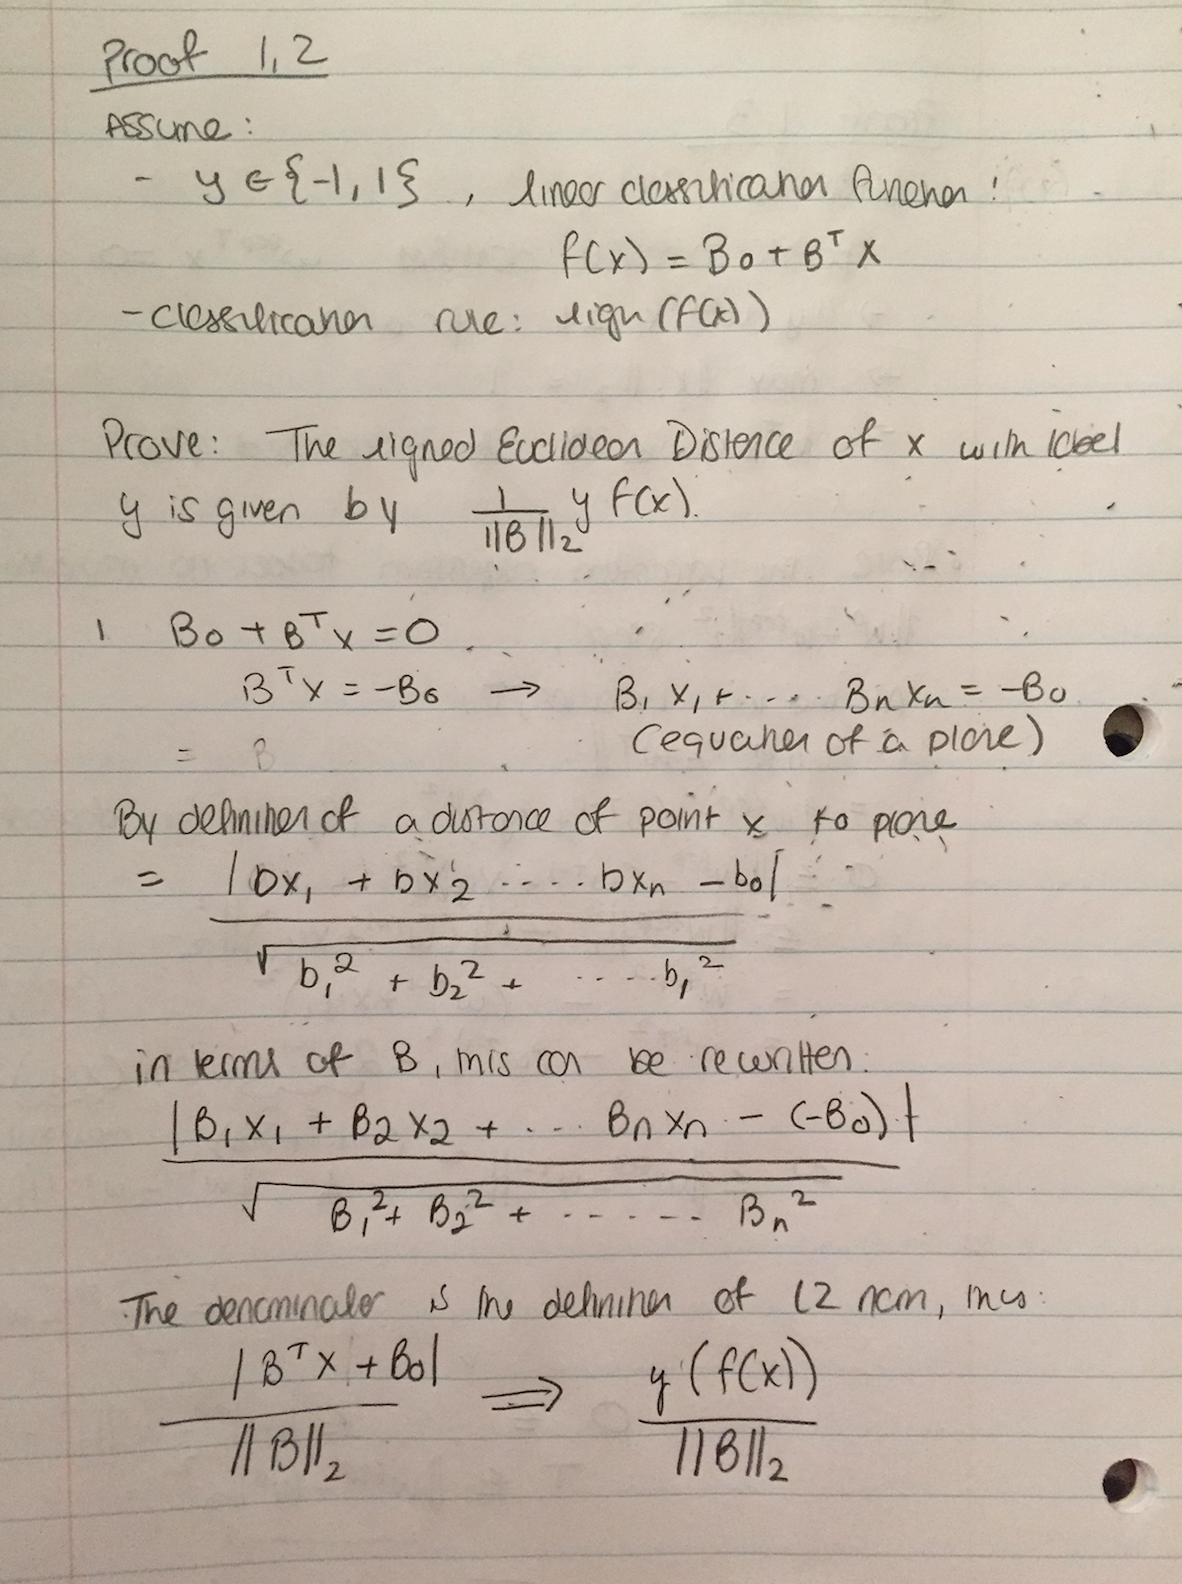 Proof 1,2
Assume:
- y ∈ {-1, 1} , linear classification function:
f(x) = B₀ + Bᵀ x
- classification rule: sign (f(x))
Prove: The signed Euclidean Distance of x with label
y is given by 1/||B||₂ y f(x).
1 B₀ + Bᵀx = 0
Bᵀx = -B₀ → B₁ x₁ + .... Bₙ xₙ = -B₀
= B (equation of a plane)
By definition of a distance of point x to plane
= |bx₁ + bx₂ ..... bxₙ - b₀|
√ b₁² + b₂² + ..... b₁²
in terms of B, this can be rewritten:
|B₁x₁ + B₂x₂ + ... Bₙxₙ - (-B₀)|
√ B₁² + B₂² + ...... Bₙ²
The denominator is the definition of L2 norm, thus:
|Bᵀx + B₀| ⟹ y (f(x))
||B||₂ ||B||₂